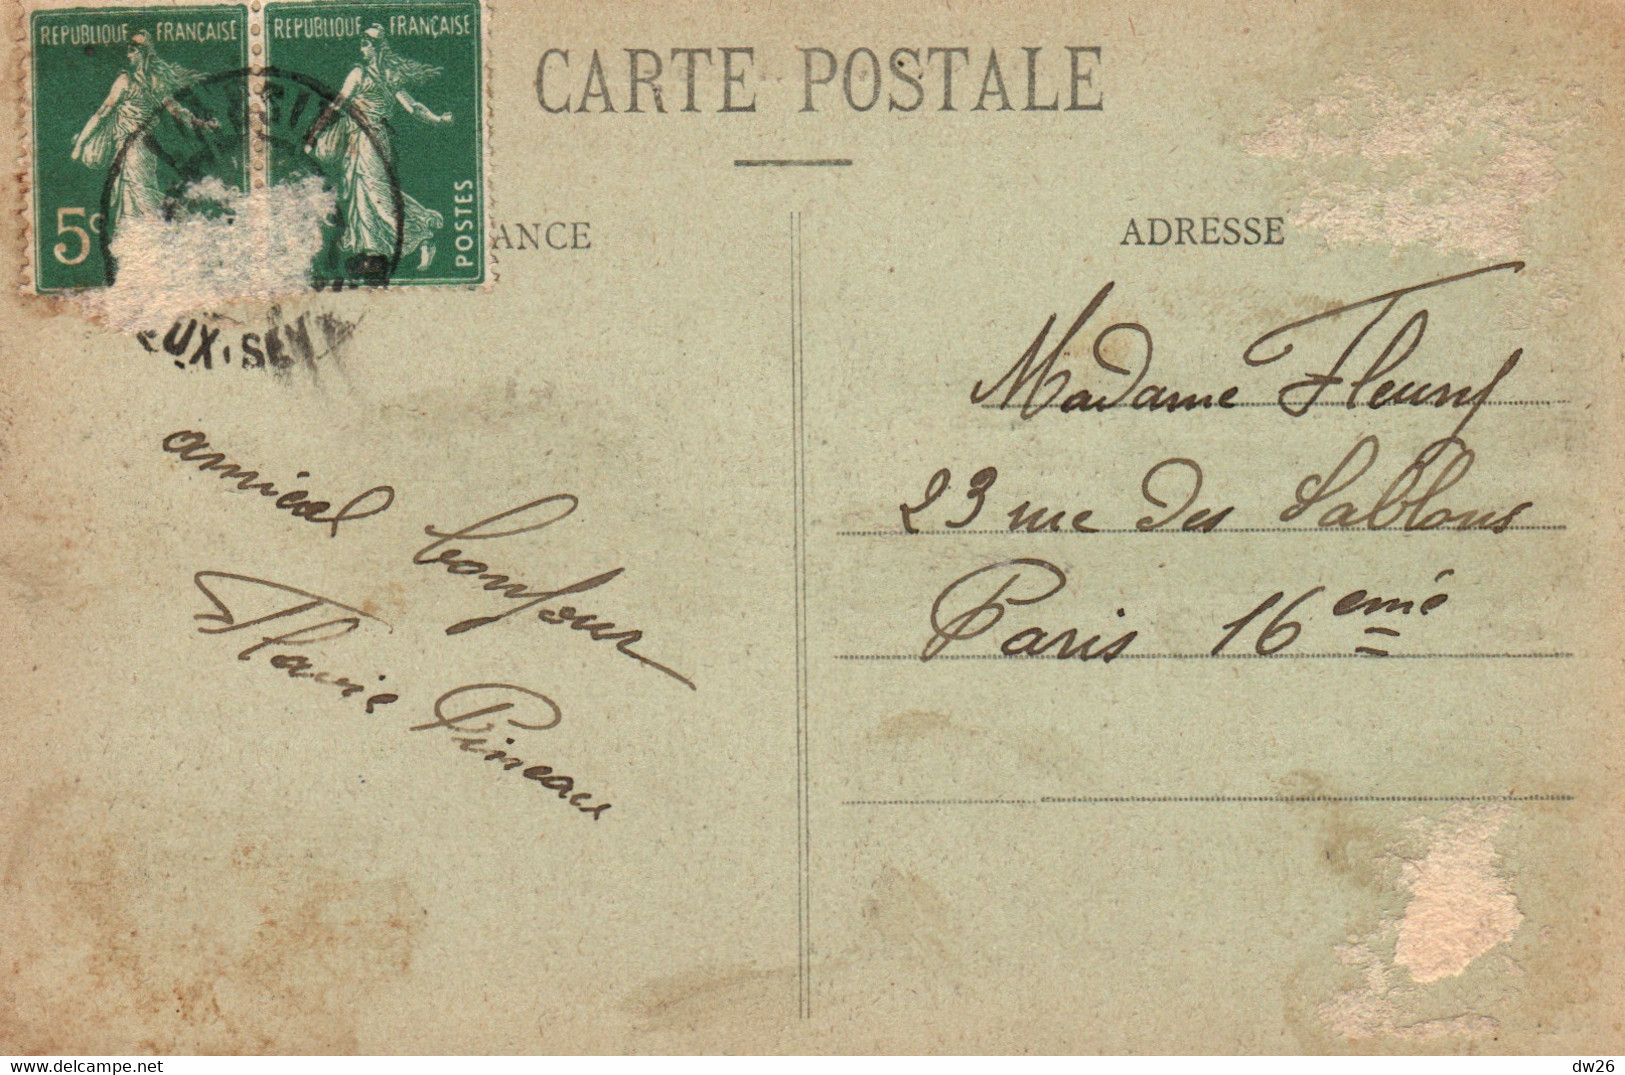 REPUBLIQUE FRANÇAISE REPUBLIQUE FRANÇAISE
5c
POSTES
CARTE POSTALE
ANCE
ADRESSE
EUX-SEV
amical bonjour
Flavie Pineau
Madame Fleury
23 rue des Sablons
Paris 16 emé
delcampe.net
dw26